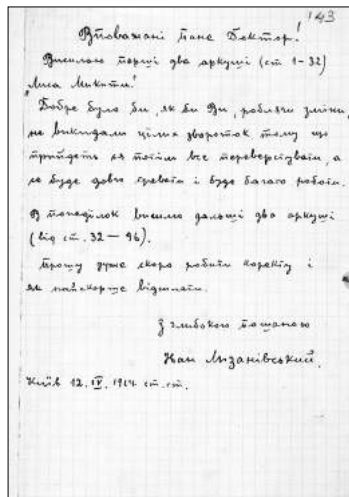 143
Вповажані Пане Доктор!
Висилаю перші два аркуші (ст 1-32)
„Лиса Микити."
Добре було би, як би Ви, роблячи зміни,
не викидали цілих звороток тому що
прийдеть ся потім все переверстувати, а
се буде довго тревати і буде багато роботи.
В понеділок вишлю дальші два аркуші
(від ст. 32 — 96).
Прошу дуже скоро робити коректу і
як найскорше відсилати.
З глибокою пошаною
Іван Лизанівський.
Київ 12.IV.1914 ст.ст.